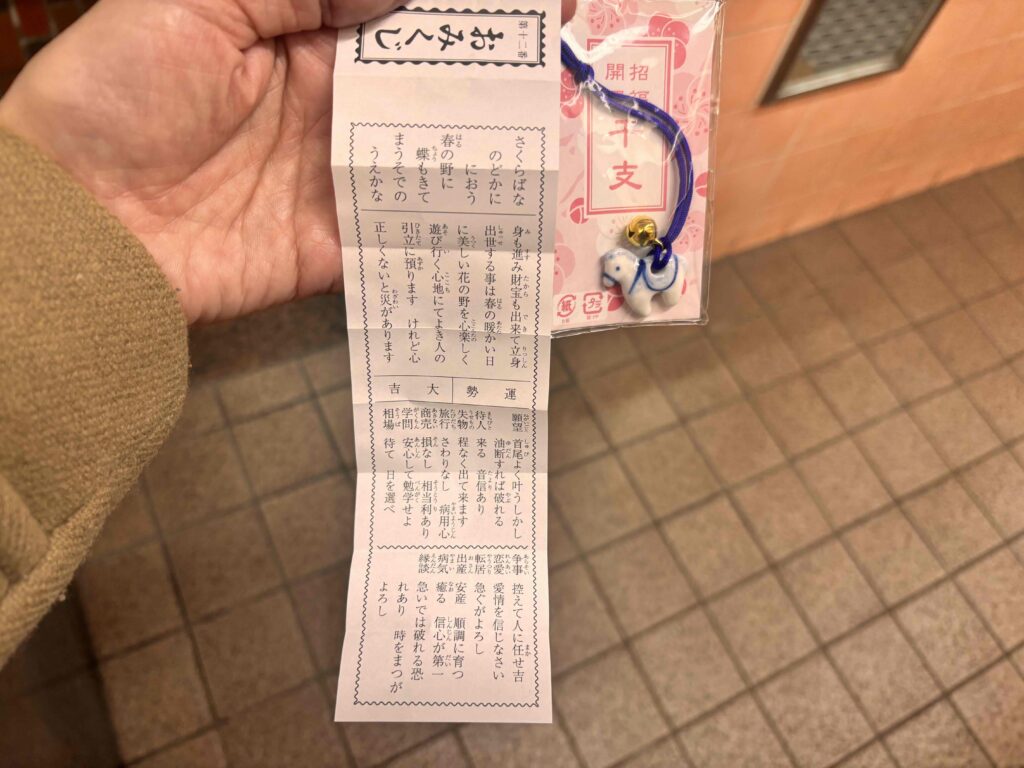 第十二番
おみくじ
さくらばな
のどかに
におう
春の野に
蝶もきて
まうそでの
うえかな
身も進み財宝も出来て立身
出世する事は春の暖かい日
に美しい花の野を心楽しく
遊び行く心地にてよき人の
引立に預ります けれど心
正しくないと災があります
運勢 大吉
願望 首尾よく叶うしかし
油断すれば破れる
待人 来る 音信あり
失物 程なく出て来ます
旅行 さわりなし 病用心
商売 損なし 相当利あり
学問 安心して勉学せよ
相場 待て 日を選べ
争事 控えて人に任せ吉
恋愛 愛情を信じなさい
転居 急ぐがよし
出産 安産 順調に育つ
病気 癒る 信心が第一
縁談 急いでは破れる恐
れあり 時をまつが
よろし
招福
開
干支
紙
プラ